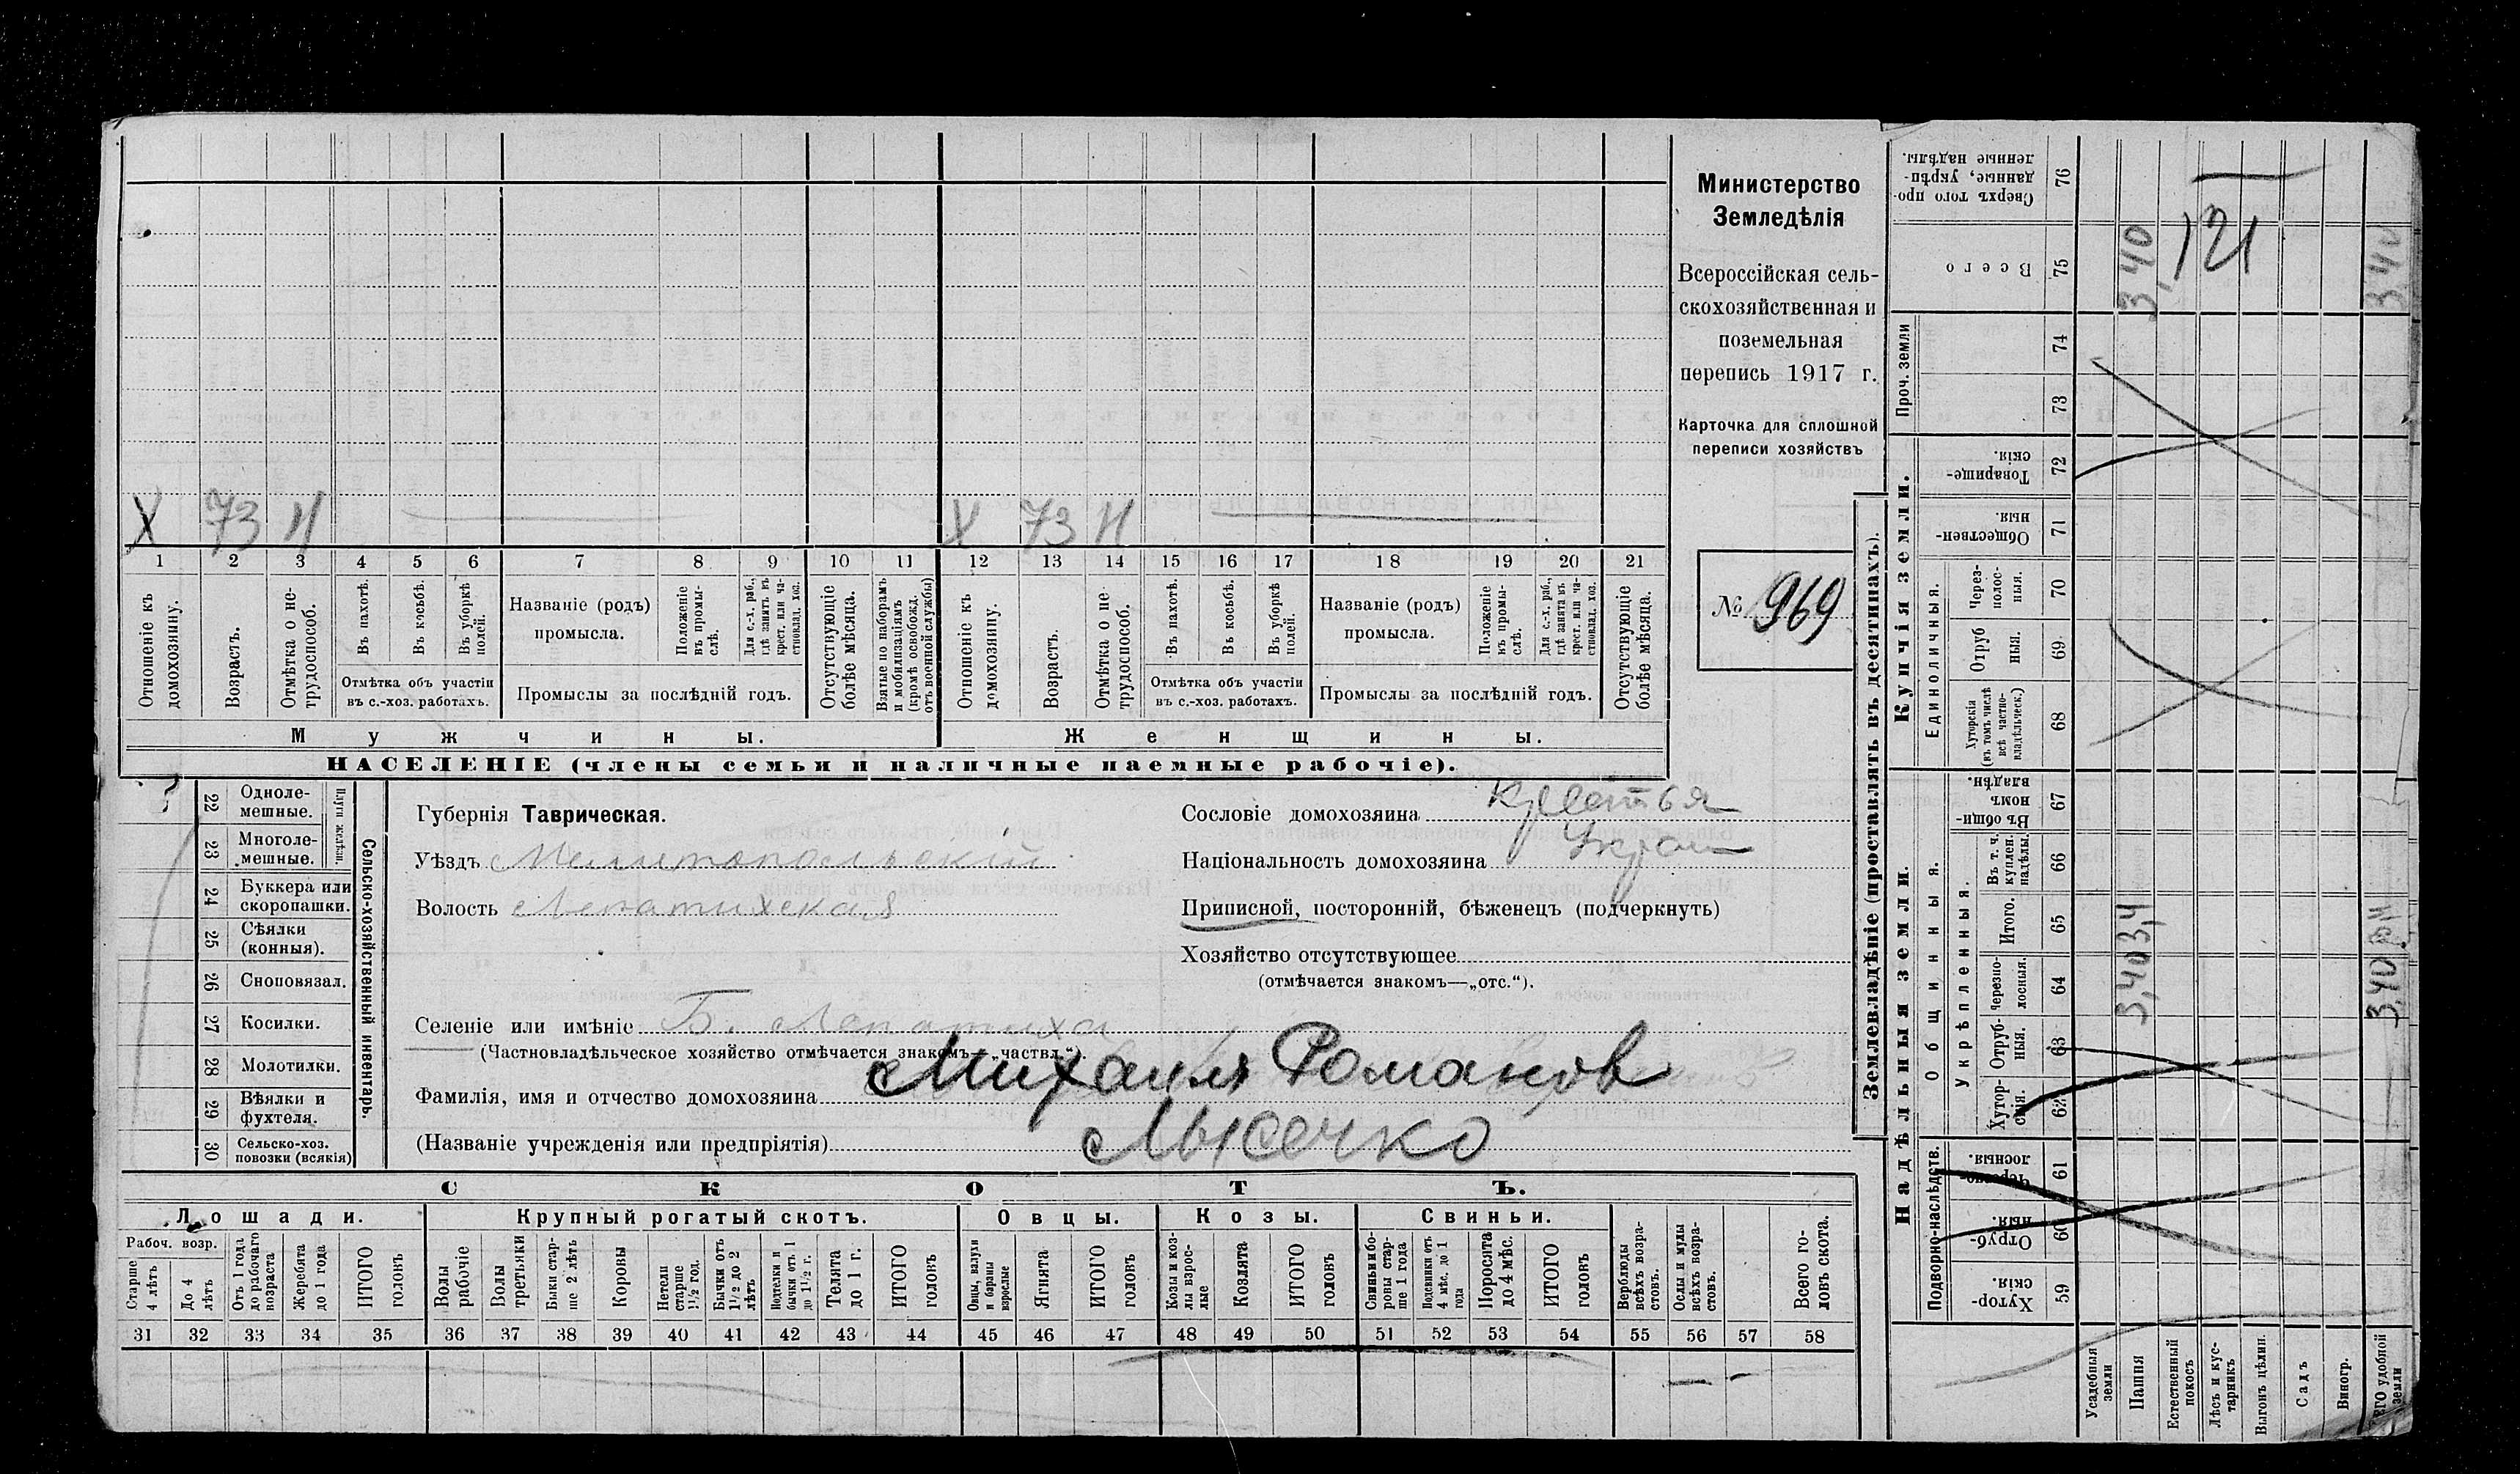 Министерство
Земледѣлія
Всероссійская сель-
скохозяйственная и
поземельная
перепись 1917 г.
Карточка для сплошной
переписи хозяйствъ
№ 969
X 73 Н X 73 Н
1 2 3 4 5 6 7 8 9 10 11 12 13 14 15 16 17 18 19 20 21
Отношеніе къ домохозяину.
Возрастъ.
Отмѣтка о не-трудоспособ.
Въ пахотѣ.
Въ косьбѣ.
Въ уборкѣ полей.
Отмѣтка объ участіи
въ с.-хоз. работахъ.
Названіе (родъ)
промысла.
Положеніе въ промы-слѣ.
Для с.-х. раб., гдѣ занятъ въ крест. или ча-стновлад. хоз.
Промыслы за послѣдній годъ.
Отсутствующіе болѣе мѣсяца.
Взятые по наборамъ и мобилизаціямъ (кромѣ освобожд. отъ военной службы)
Отношеніе къ домохозяину.
Возрастъ.
Отмѣтка о не-трудоспособ.
Въ пахотѣ.
Въ косьбѣ.
Въ уборкѣ полей.
Отмѣтка объ участіи
въ с.-хоз. работахъ.
Названіе (родъ)
промысла.
Положеніе въ промы-слѣ.
Для с.-х. раб., гдѣ занята въ крест. или ча-стновлад. хоз.
Промыслы за послѣдній годъ.
Отсутствующіе болѣе мѣсяца.
Мужчины. Женщины.
НАСЕЛЕНІЕ (члены семьи и наличные наемные рабочіе).
Сельско-хозяйственный инвентарь.
Плуги желѣзн.
22 Одноле-мешные.
23 Многоле-мешные.
24 Буккера или скоропашки.
25 Сѣялки (конныя).
26 Сноповязал.
27 Косилки.
28 Молотилки.
29 Вѣялки и фухтеля.
30 Сельско-хоз. повозки (всякія)
Губернія Таврическая.
Уѣздъ Мелитопольскій
Волость Лепатихская
Сословіе домохозяина крестья
Національность домохозяина Украи
Приписной, посторонній, бѣженец (подчеркнуть)
Хозяйство отсутствующее
(отмѣчается знакомъ—„отс.“).
Селеніе или имѣніе Б. Лепатиха
(Частновладѣльческое хозяйство отмѣчается знакомъ—„частвл.“).
Фамилія, имя и отчество домохозяина Михаил Романов
(Названіе учрежденія или предпріятія) Лысечко
СКОТЪ.
Лошади. Крупный рогатый скотъ. Овцы. Козы. Свиньи.
Рабоч. возр.
Старше 4 лѣтъ
До 4 лѣтъ
Отъ 1 года до рабочаго возраста
Жеребята до 1 года
ИТОГО головъ
Волы рабочіе
Волы третьяки
Быки стар-ше 2 лѣтъ
Коровы
Нетели старше 1½ год.
Бычки отъ 1½ до 2 лѣтъ
Подтелки и бычки отъ 1 до 1½ г.
Телята до 1 г.
ИТОГО головъ
Овцы, валухи и бараны взрослые
Ягнята
ИТОГО головъ
Козы и коз-лы взрос-лые
Козлята
ИТОГО головъ
Свиньи и бо-ровы стар-ше 1 года
Подсвинки отъ 4 мѣс. до 1 года
Поросята до 4 мѣс.
ИТОГО головъ
Верблюды всѣхъ возра-стовъ.
Ослы и мулы всѣхъ возра-стовъ.
Всего го-ловъ скота.
31 32 33 34 35 36 37 38 39 40 41 42 43 44 45 46 47 48 49 50 51 52 53 54 55 56 57 58
Землевладѣніе (проставлять въ десятинахъ).
Надѣльныя земли. Купчія земли. Проч. земли
Подворно-наслѣдств.
Общинныя.
Укрѣпленныя.
Единоличныя.
Хутор-скія. 59
Отруб-ныя. 60
Черезпо-лосныя. 61
Хутор-скія. 62
Отруб-ныя. 63
Черезпо-лосныя. 64
Итого. 65
Въ т. ч. куплен. надѣлы. 66
Въ общин-номъ владѣн. 67
Хуторскія (въ томъ числѣ всѣ частно-владѣльческ.) 68
Отруб ныя. 69
Через-полос-ныя. 70
Обществен-ныя. 71
Товарище-скія. 72
73
74
Всего 75
Сверхъ того про-данные, укрѣп-ленные надѣлы. 76
Усадебныя земли
Пашня 3,40 3,4 3,40
Естественный покосъ
Лѣсъ и кус-тарникъ
Выгонъ цѣлин.
Садъ
Виногр.
ЕГО удобной земли 3,40 3,40
121